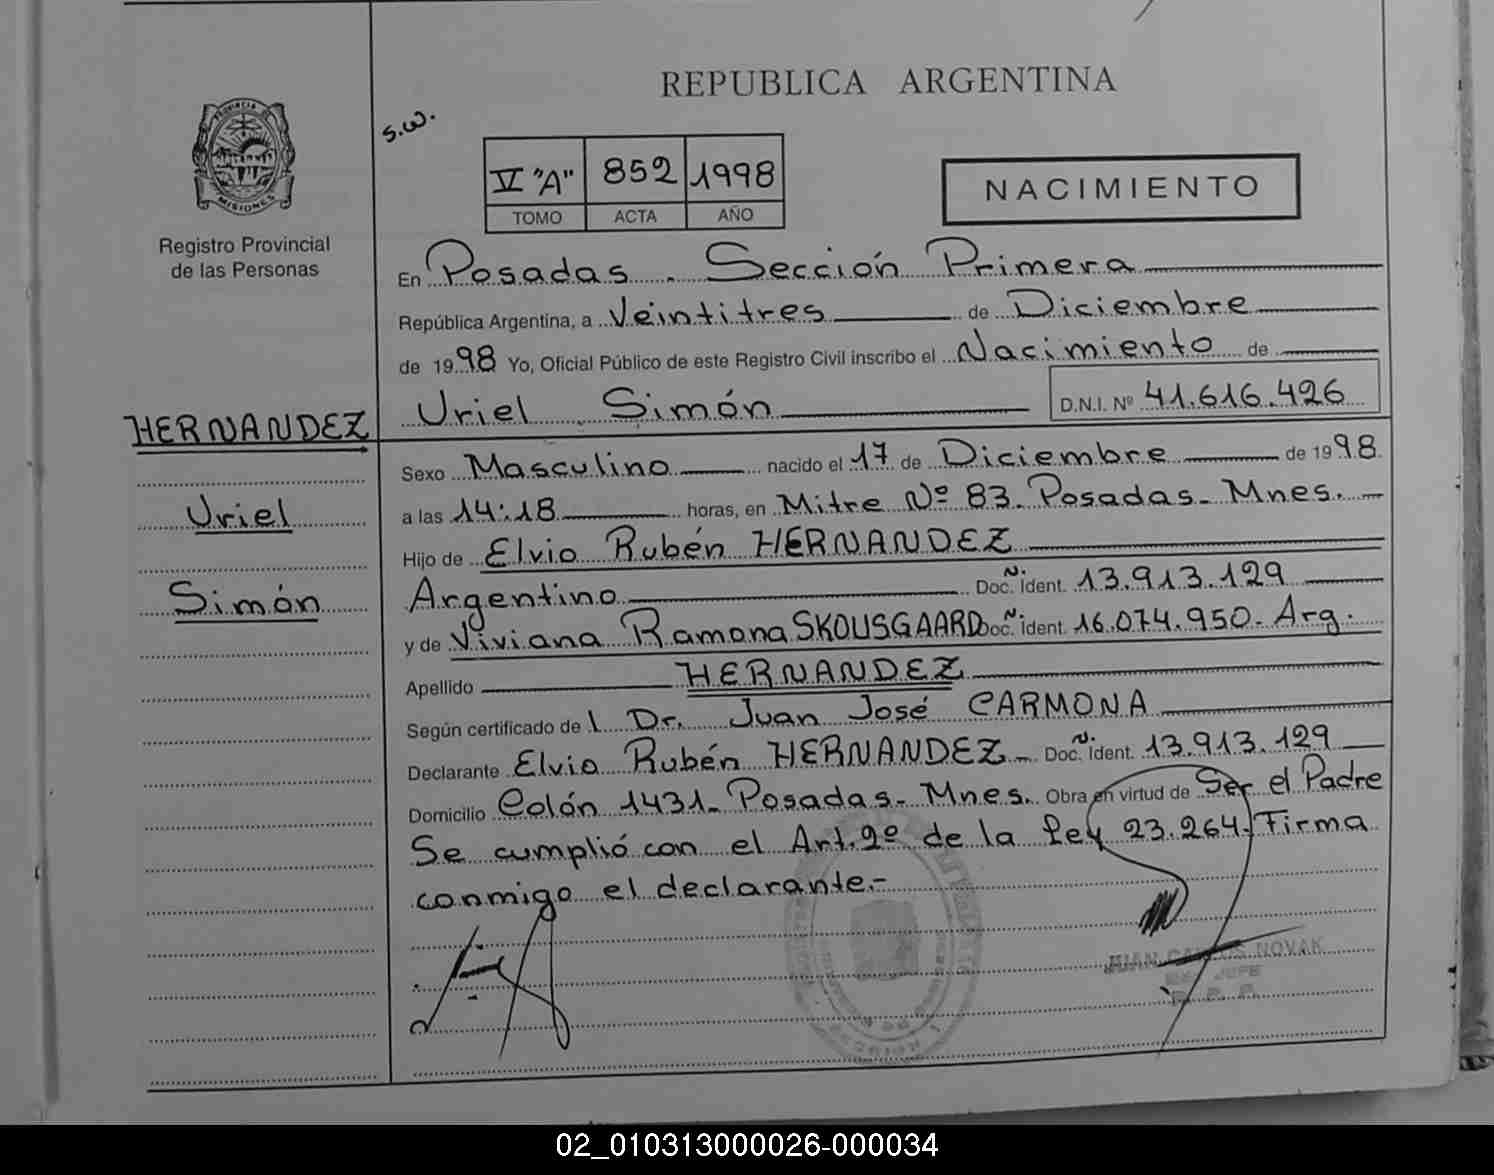 REPUBLICA ARGENTINA
PROVINCIA DE
MISIONES
Registro Provincial
de las Personas
s.w.
V "A" 852 1998
TOMO ACTA AÑO
NACIMIENTO
En Posadas. Sección Primera
República Argentina, a Veintitres de Diciembre
de 1998 Yo, Oficial Público de este Registro Civil inscribo el Nacimiento de
Uriel Simón D.N.I. Nº 41.616.426
HERNANDEZ
Uriel
Simón
Sexo Masculino nacido el 17 de Diciembre de 1998.
a las 14:18 horas, en Mitre Nº 83. Posadas- Mnes.
Hijo de Elvio Rubén HERNANDEZ
Argentino Doc. Ñ. Ident. 13.913.129
y de Viviana Ramona SKOUSGAARD Doc. Ñ. Ident. 16.074.950. Arg.
Apellido HERNANDEZ
Según certificado de l Dr. Juan José CARMONA
Declarante Elvio Rubén HERNANDEZ- Doc. Ñ. Ident. 13.913.129
Domicilio Colón 1431- Posadas- Mnes. Obra en virtud de Ser el Padre
Se cumplió con el Art. 2º de la Ley 23.264. Firma
conmigo el declarante.-
JUAN CARLOS NOVAK
JEFE
R. P. P.
02_010313000026-000034